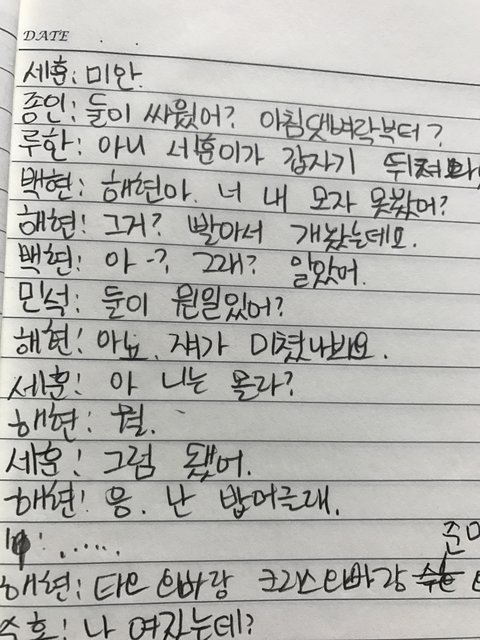 DATE
세훈: 미안.
종인: 둘이 싸웠어? 아침댓벼락부터?
루한: 아니 세훈이가 갑자기 뛰쳐
백현: 해현아. 너 내 모자 못봤어?
해현: 그거? 빨아서 개놨는데요.
백현: 아-? 그래? 알았어.
민석: 둘이 뭔일있어?
해현: 아뇨. 쟤가 미쳤나봐요.
세훈: 아 니는 몰라?
해현: 뭘.
세훈: 그럼 됐어.
해현: 응. 난 밥먹을래.
:......
준
해현: 타오 오빠랑 크리스오빠랑
나 여잔는데?